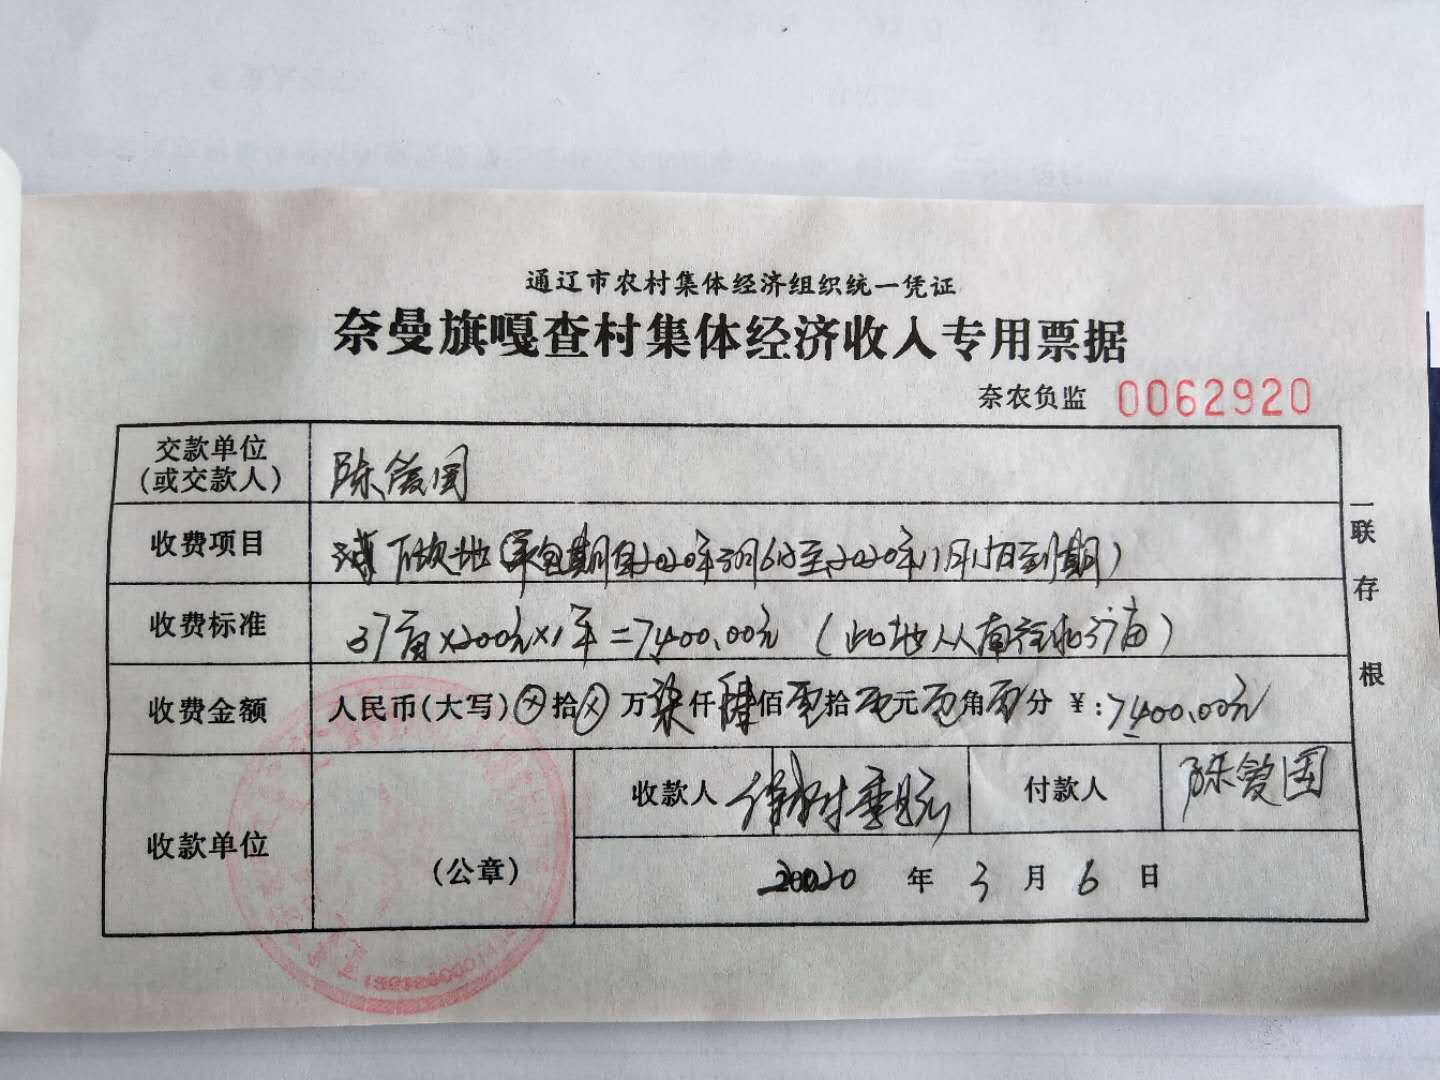 通辽市农村集体经济组织统一凭证
奈曼旗嘎查村集体经济收入专用票据
奈农负监 0062920
交款单位
(或交款人)
陈爱国
收费项目
下坎地(承包期自2020年3月6日至2020年11月15日到期)
收费标准
37亩×200元×1年=7400.00元(此地从南往北37亩)
收费金额
人民币(大写)ⓧ拾ⓧ万柒仟肆佰零拾零元零角零分 ¥:7400.00元
收款单位
(公章)
收款人
付款人
陈爱国
2020 年 3 月 6 日
一联存根